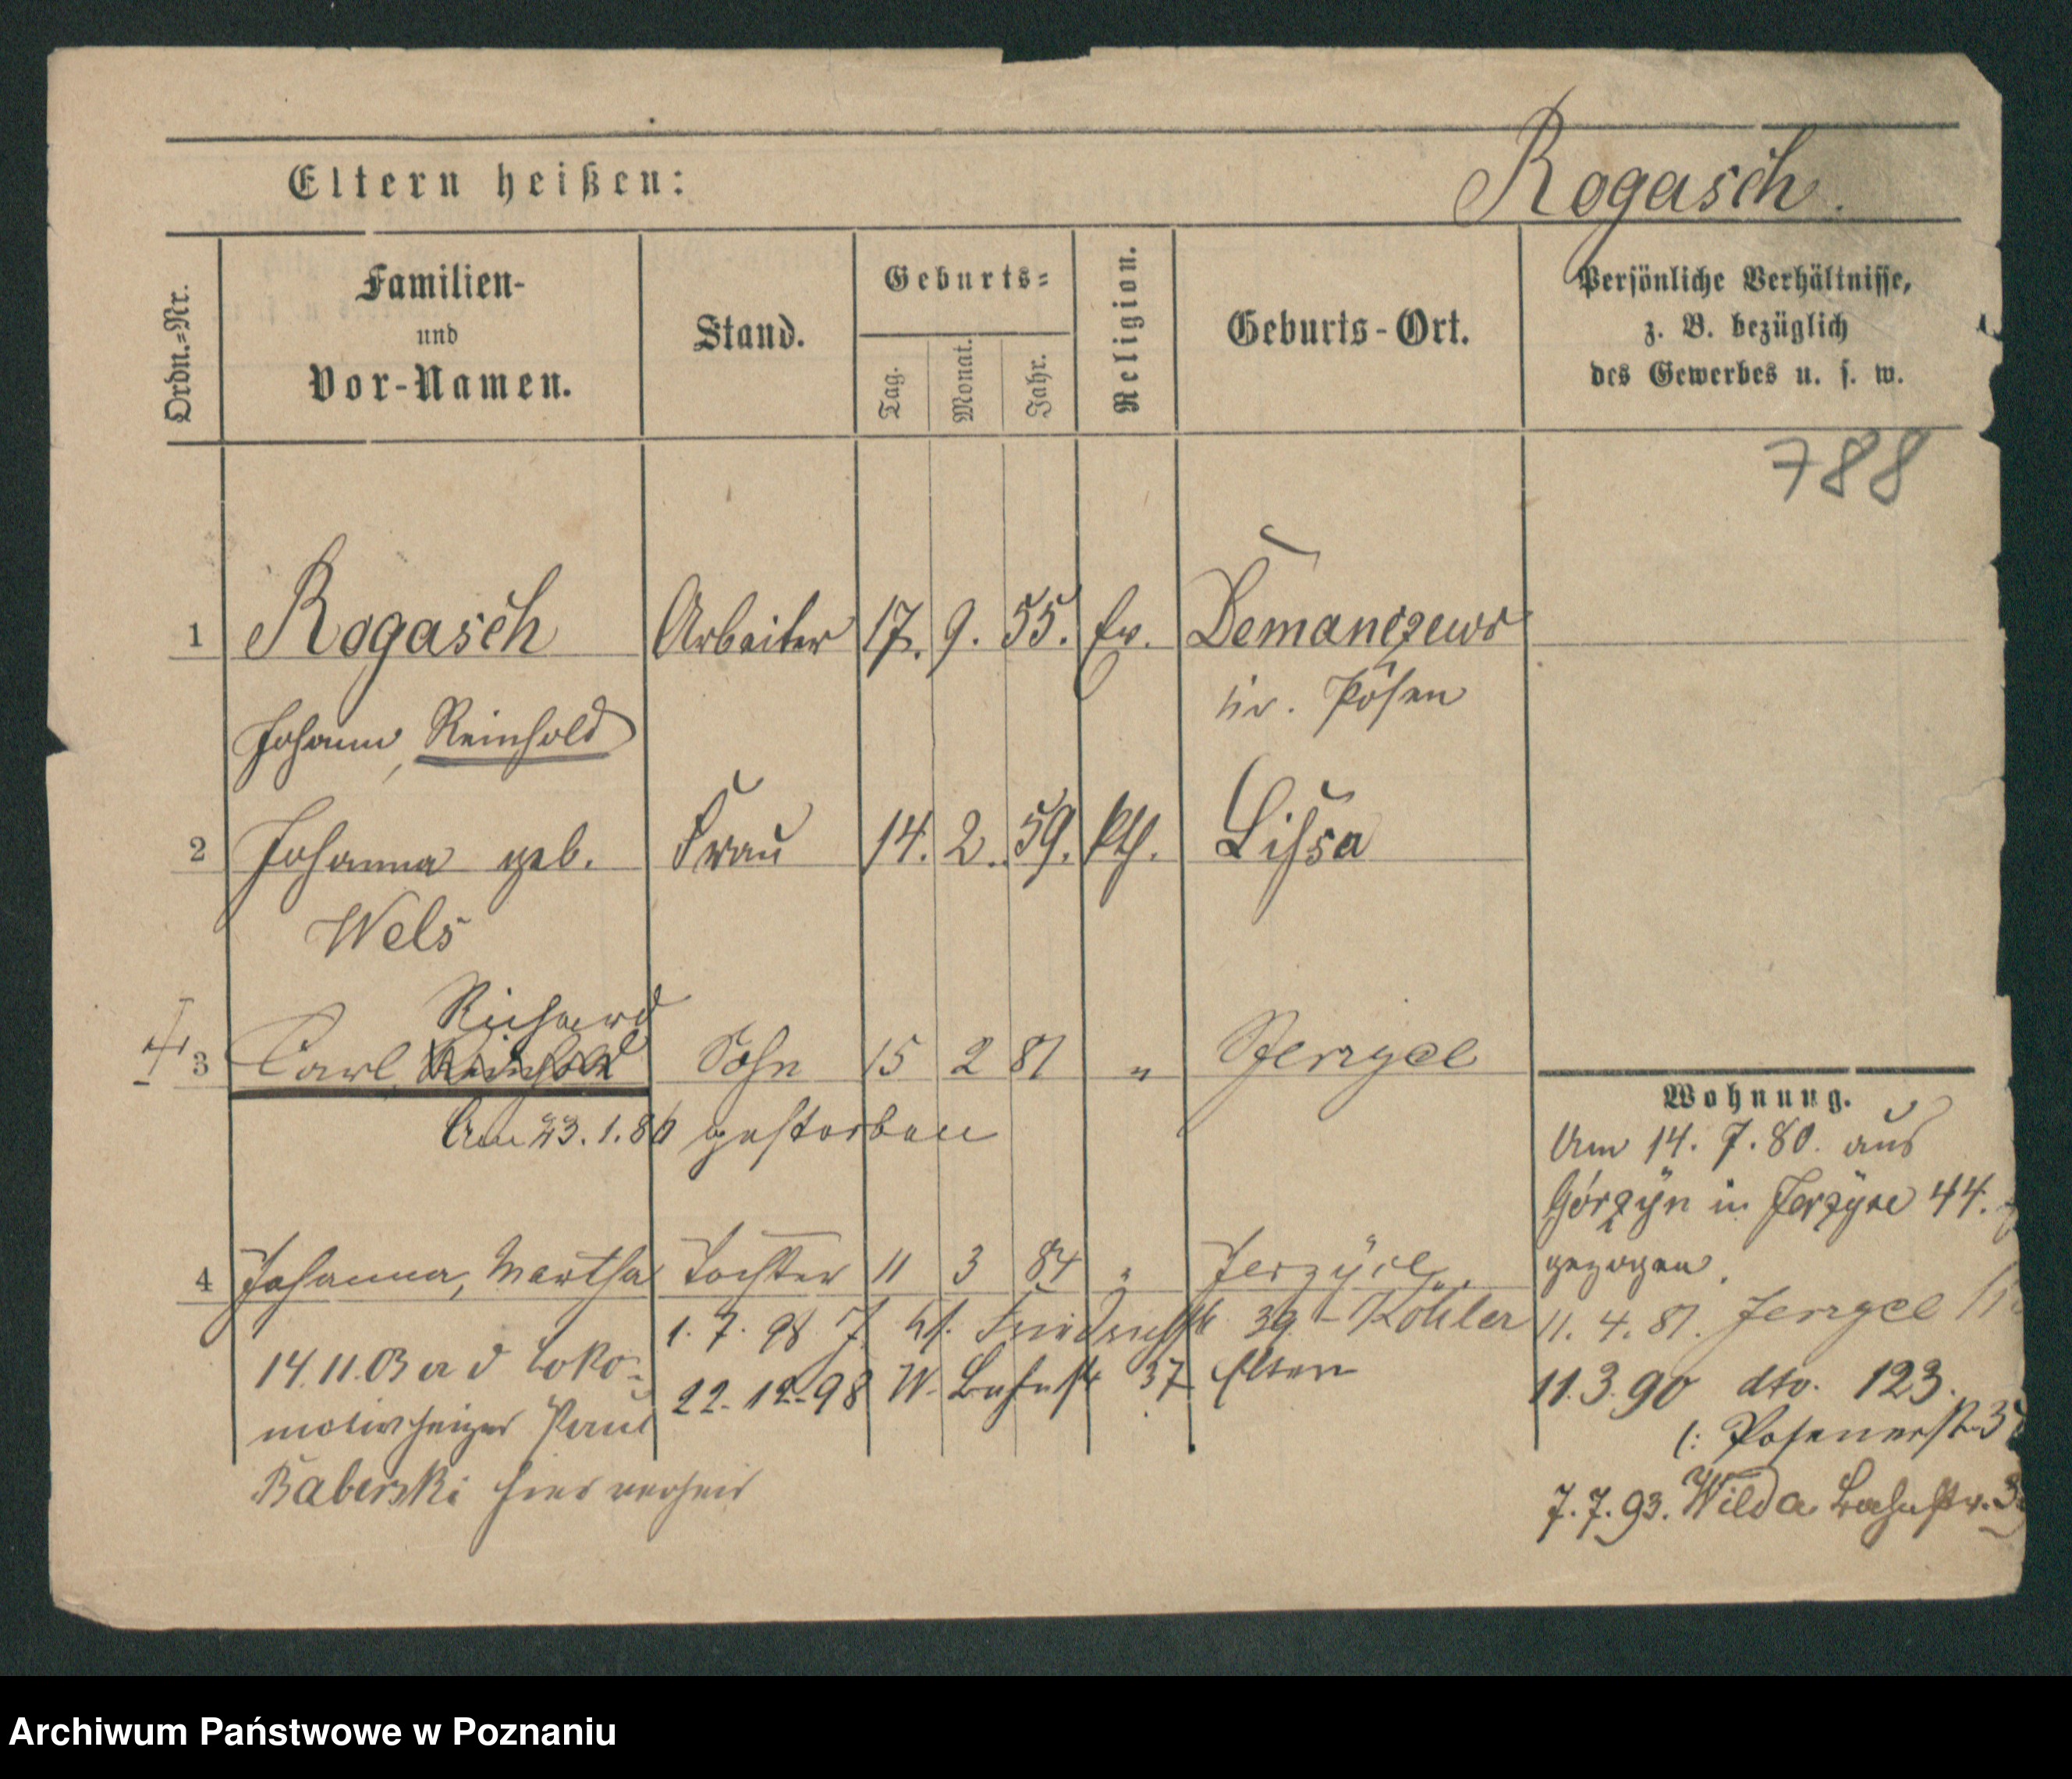 Rogasch.
Eltern heißen:
Ordn.=Nr.
Familien-
und
Vor-Namen.
Stand.
Geburts=
Tag.
Monat.
Jahr.
Religion.
Geburts-Ort.
Persönliche Verhältnisse,
z. B. bezüglich
des Gewerbes u. s. w.
788
1 Rogasch Arbeiter 17. 9. 55. Ev.
Kr. Posen
Johann, Reinhold
2 Johanna geb. Frau 14. 2. 59. kth. Lissa
Wels
Richard
3 Carl Reinhold Sohn 15 2 81 „
Am 23.1.86 gestorben
4 Johanna, Martha Tochter 11 3 84 „ Jerzyce
1. 7. 98 J. Friedrichstr 39 - Köhler
22. 12. 98 W. Bahnstr 37 Eltern
14.11.03 a d Loko-
motivheizer Paul
Baberski hier verheir
Wohnung.
Am 14. 7. 80. aus
Górzyn in Jerzyce 44.
gezogen.
11. 4. 81.
11.3.90 dto. 123.
(: Posenerstr
7.7.93. Wilda Bahnstr.
Archiwum Państwowe w Poznaniu